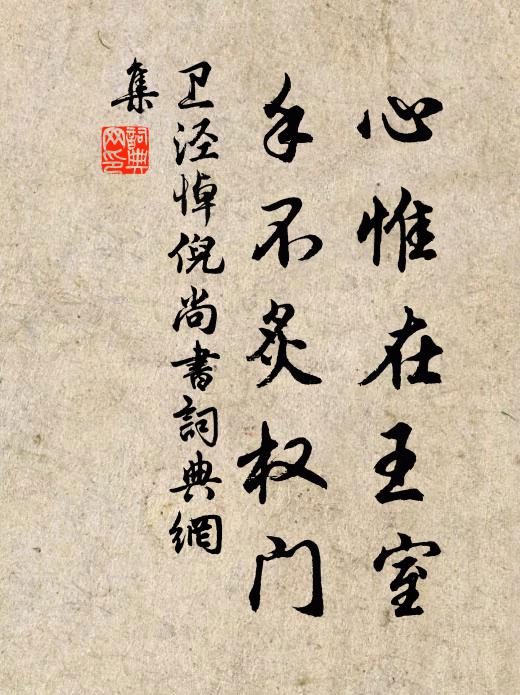 心惟在王室
手不炙权门
卫泾悼倪尚书词典網
集
詞典网印